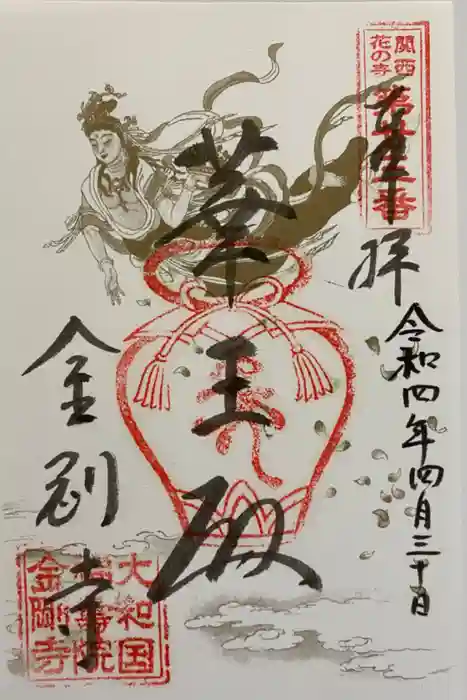 関西
花の寺
第廿三番
奉拝
令和四年四月三十日
華王殿
金剛寺
大和国
金剛寺